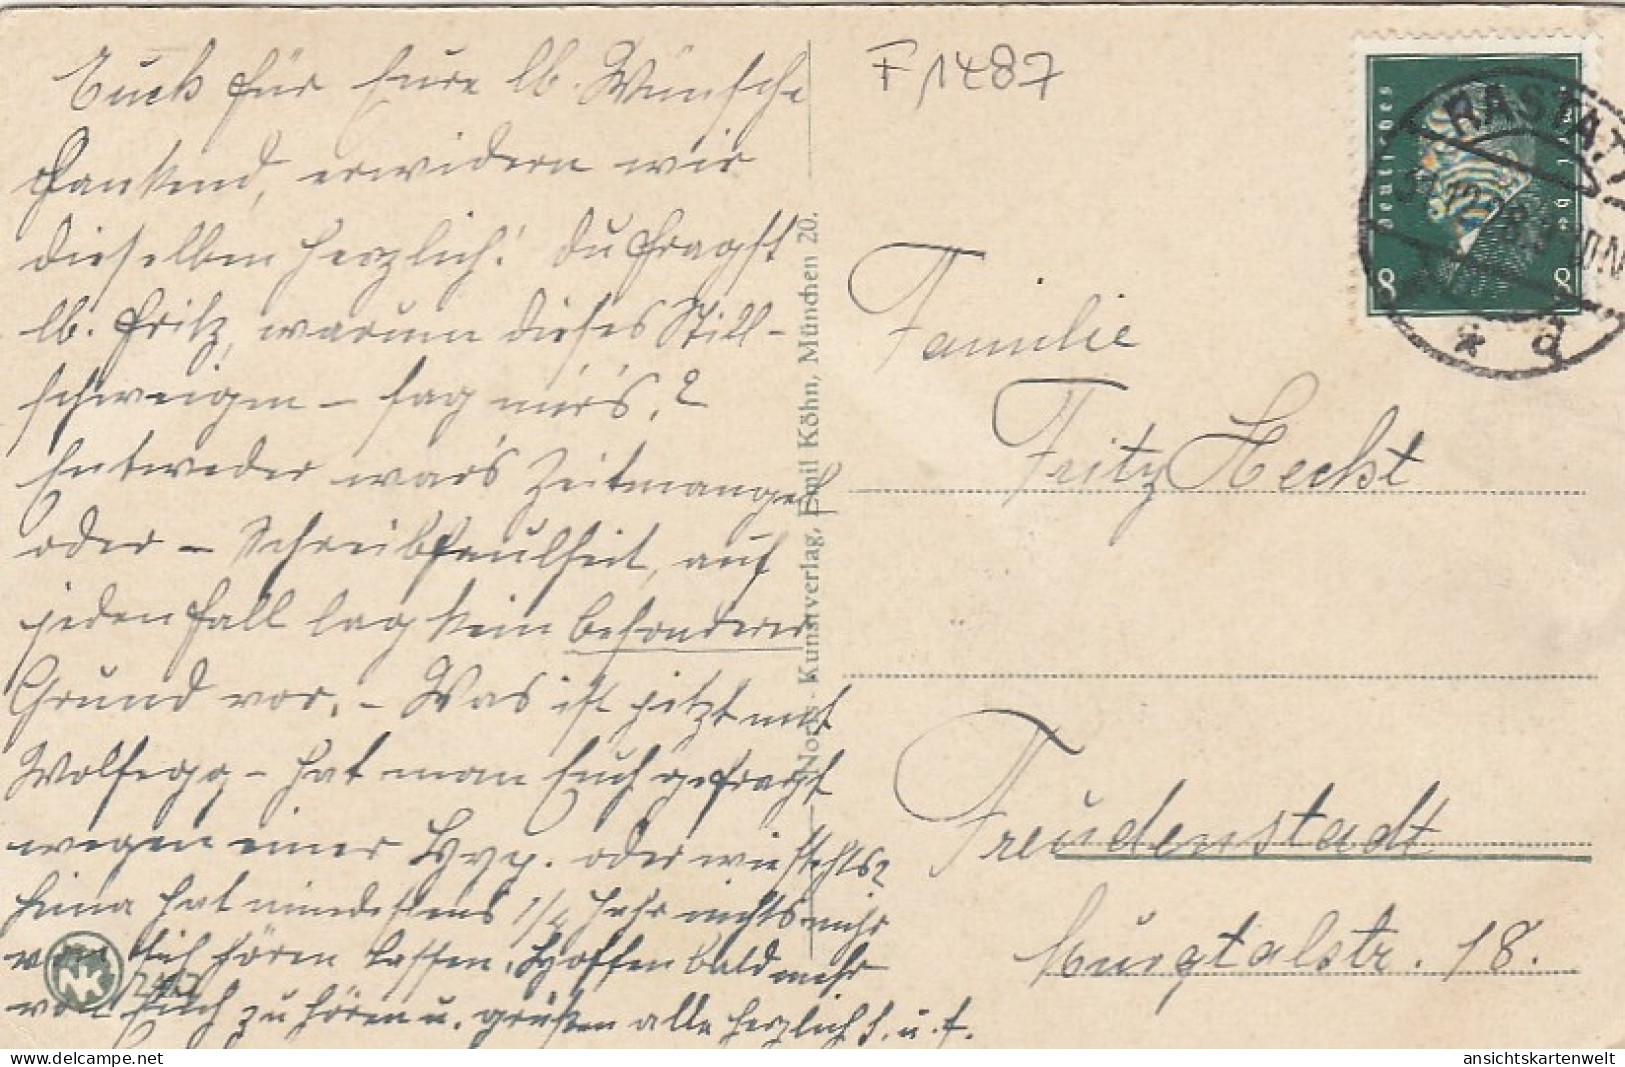 Euch für Eure lb. Wünsche
dankend, erwidern wir
dieselben herzlich! Du fragst
lb. Fritz, warum dieses Still-
schweigen – sag mir's?
Entweder war's Zeitmangel
oder – Schreibfaulheit, auf
jeden Fall lag kein besonderer
Grund vor. – Was ist jetzt mit
Wolfegg – hat man Euch gefragt
wegen einer Hyp. oder wie steht's?
hat mindestens 1/4 Jahr nichts mehr
von sich hören lassen. Hoffen bald mehr
von Euch zu hören u. grüßen alle herzlich
F 1487
Deutsches Reich
8 8
RASTATT
Familie
Fritz Hecht
Freudenstadt
Murgtalstr. 18.
Kunstverlag, Emil Köhn, München 20.
NK
ansichtskartenwelt